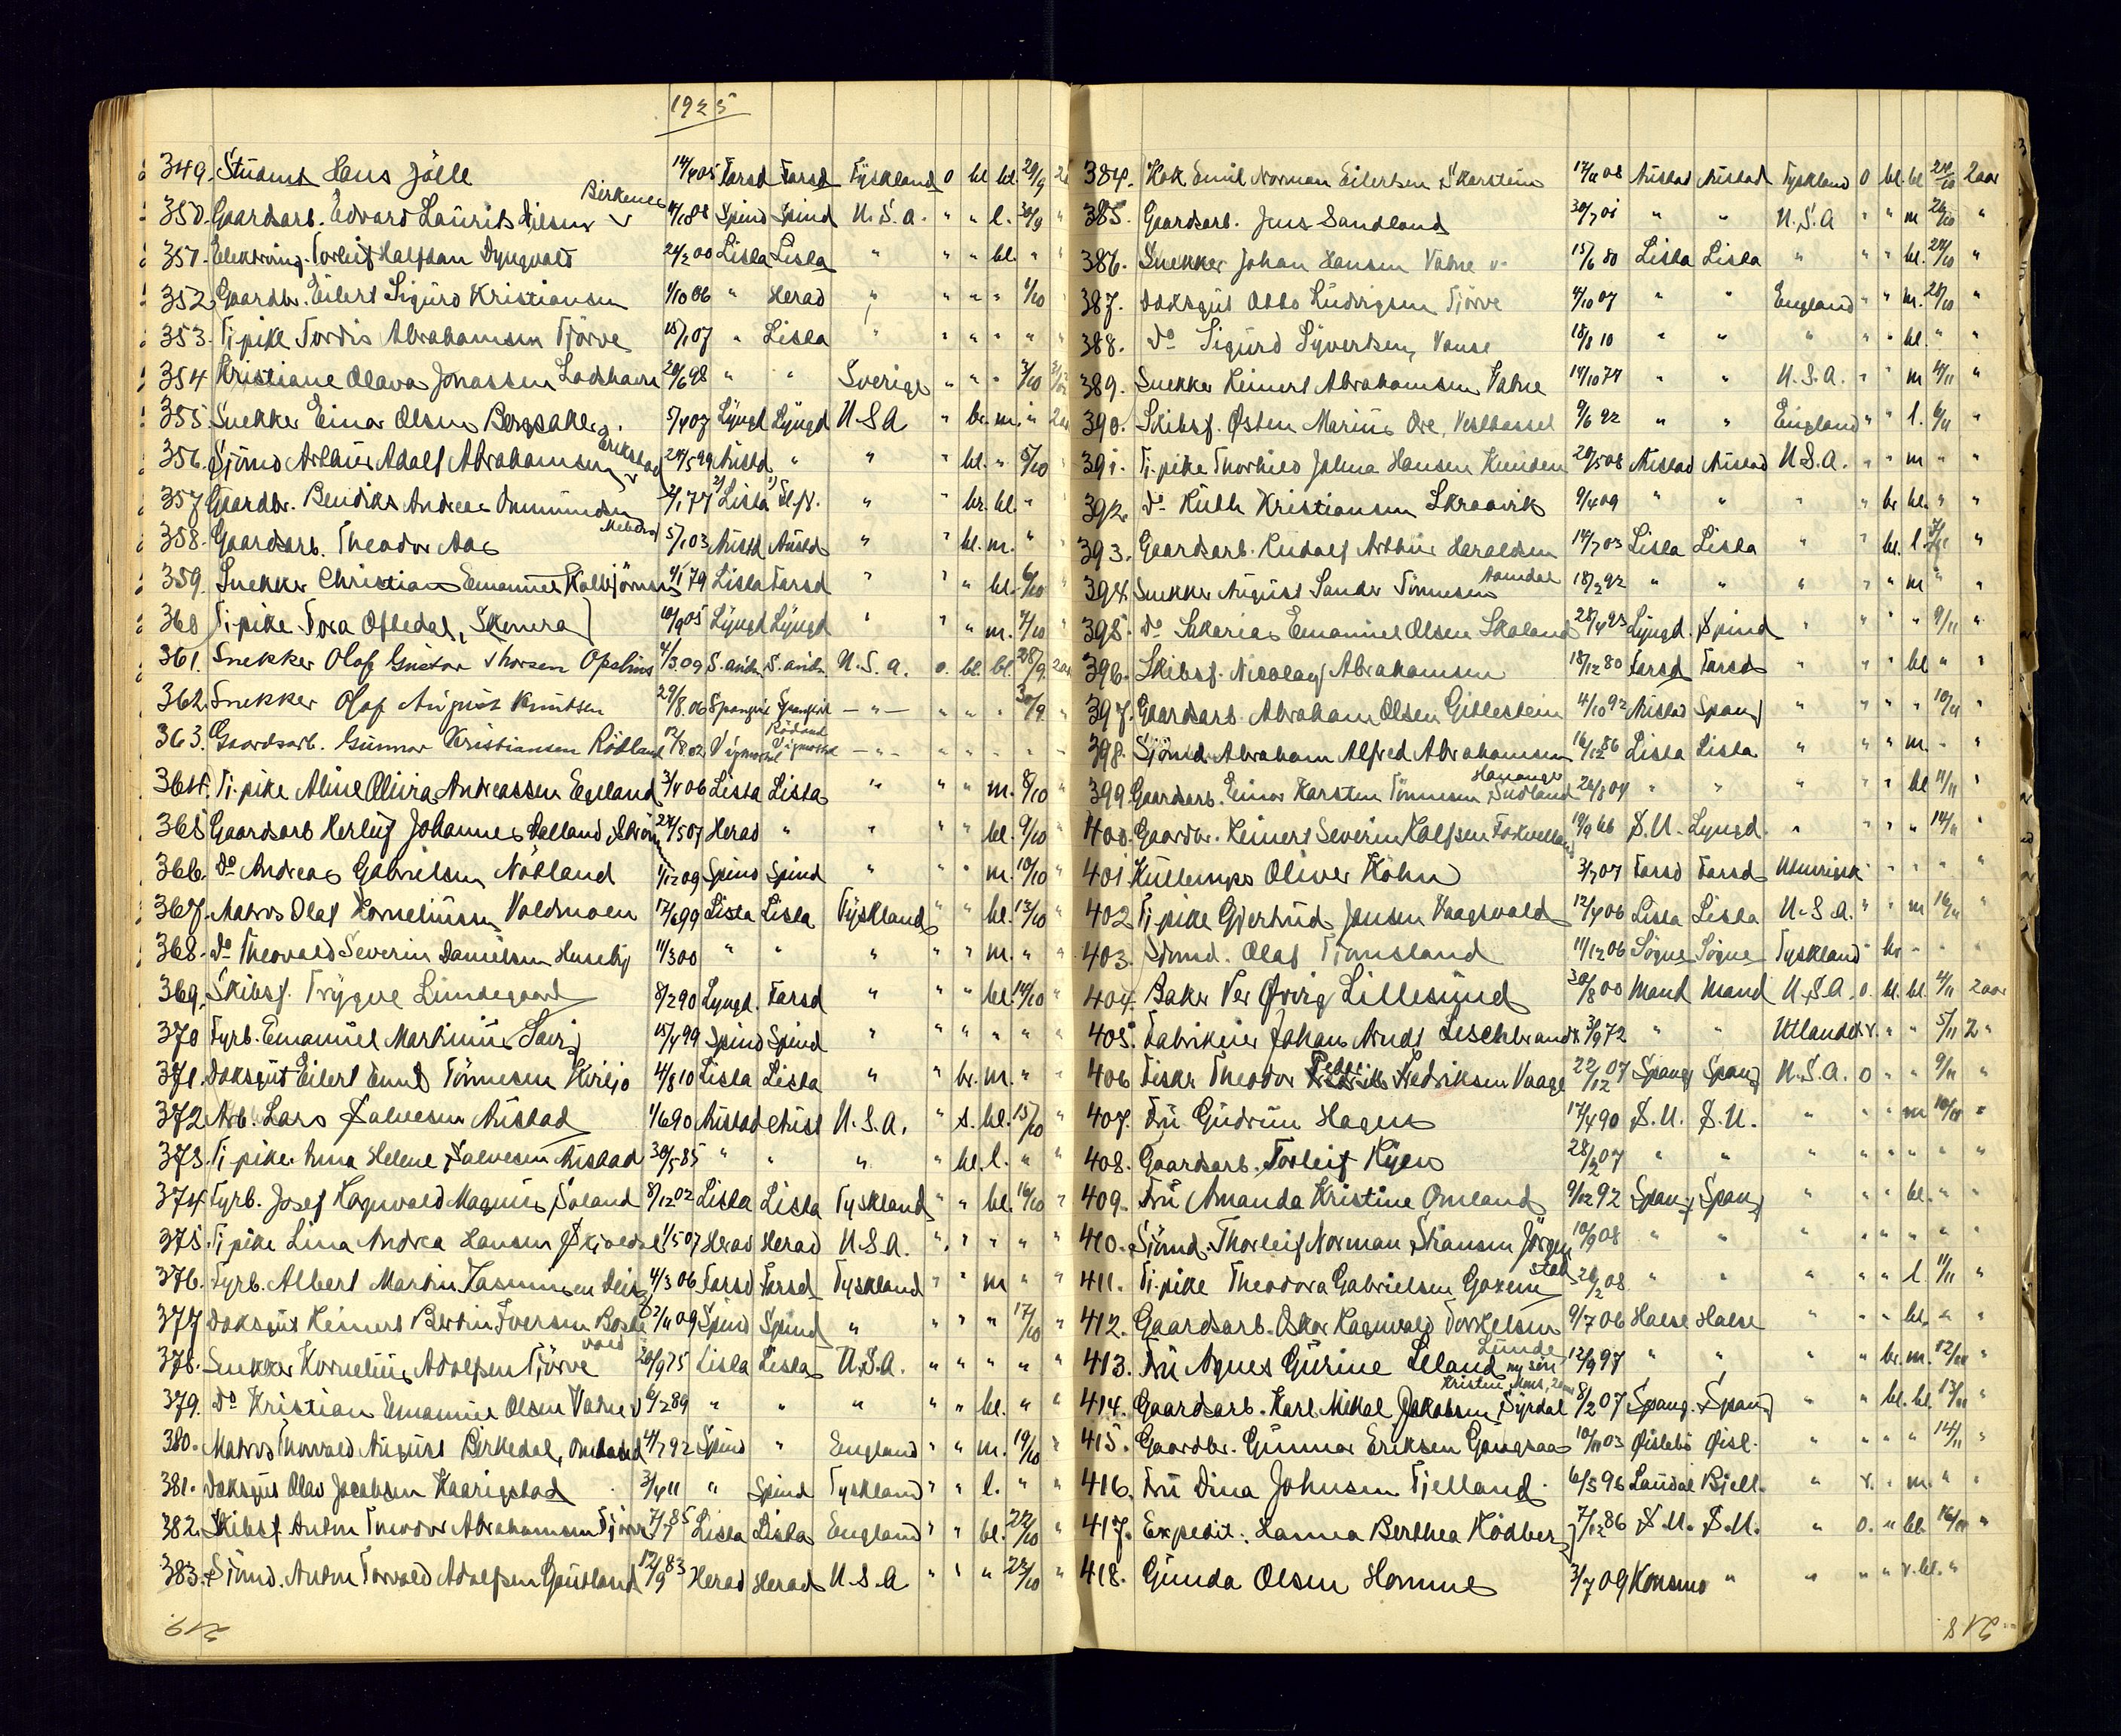 1925
349. Student Hans Jölle 14/4 05 Farsd Farsd Tyskland o bl bl. 29/9
350. Gaardsarb. Edvard Laurits Nilsen Birkenes v 4/1 88 Spind Spind U.S.A. " " l. 30/9 "
351. Elektring. Torleif Halfdan Dyngvold 24/2 00 Lista Lista " " " bl. " "
352. Gaardbr. Eilert Sigurd Kristiansen 1/10 06 " Herad " " " " 1/10
353. Tj.pike Tordis Abrahamsen Tjörve 15/1 07 " Lista " " " " " "
354 Kristiane Olava Jonassen Lodshavn 20/6 98 " " Sverige " " " 3/10
355 Snekker Einar Olsen Bergsaker. 5/4 07 Lyngd Lyngd U.S.A " br. m. " 2aar
356. Sjömd Arthur Adolf Abrahamsen Erikstad 24/5 99 Austd " " " bl. " 5/10
357 Gaardbr. Bendiks Andreas Ommundsen 2/1 77 Lista " br. bl. "
358. Gaardsarb. Theodor Aas Mebdö 5/1 03 Austd Austd " " bl. m. "
359. Snekker Christian Emanuel Kolbjörnsen 4/1 79 Lista Farsd " " " bl. 6/10
360 Tj.pike Tora Oftedal, Skomra 10/9 05 Lyngd Lyngd " " " m. 7/10
361. Snekker Olaf Gustav Thorsen Opsland 4/3 09 S.aud. S.aud. U.S.A. o. bl. bl. 28/9 2aar
362. Snekker Olaf August Knutsen 29/8.06 Spangrd Spangrd —"— " " " 30/9 "
363. Gaardsarb. Gunnar Kristiansen Rödland 12/8 02 Vigmostad Rödland Vigmostad —"— " " " " "
364. Tj.pike Aline Olivia Andreassen Egeland 3/4 06 Lista Lista " " " m. 8/10
365 Gaardsarb Herleif Johannes Dalland 24/5 07 Herad " " " " bl. 9/10
366. Do Andreas Gabrielsen Nötland 1/12 09 Spind Spind " " " m. 10/10
367. Matros Olaf Korneliussen Voldmoen 17/6 99 Lista Lista Tyskland " " bl. 13/10
368. Do Theovald Severin Danielsen Huseby 11/3 00 " " " " " m. " "
369. Skibsf. Trygve Lundegaard 8/2 90 Lyngd. Farsd " " " bl. 14/10 "
370 Fyrb. Emanuel Martinius 15/4 99 Spind Spind " " " " " "
371. Doksgut Eilert Emil Tönnesen Kviljo 4/8 10 Lista Lista " " br. m. " "
372 Arb. Lars Salvesen Austad 1/6 90 Austad Aust U.S.A. " s. bl. 15/10 "
373. Tj.pike Anna Helene Salvesen Austad 30/5 85 " " " " bl. l. " "
374 Fyrb. Josef Ragnvald Magnus Soland 8/12 02 Lista Lista Tyskland " " bl. 16/10 "
375. Tj.pike Lina Andrea Hansen Skjoldal 1/5 07 Herad Herad U.S.A. " " " " "
376. Fyrb. Albert Martin Rasmussen 4/3 06 Farsd Farsd Tyskland " " m " "
377 Doksgut Reinert Bertin Iversen Boskevold 2/11 09 Spind Spind " " " " 17/10 "
378. Snekker Kornelius Adolfsen Tjörve 20/9 75 Lista Lista U.S.A. " " " " "
379. Do Kristian Emanuel Olsen Vatne v 6/2 89 " " " " " bl. " "
380. Matros Thorvald August Birkedal, Omland 4/7 92 Spind " England " " m. 19/10 "
381. Doksgut Olav Jacobsen Kaarigstad 3/4 11 " Spind Tyskland " " l. " "
382. Skibsf. Anton Theodor Abrahamsen Tjörve 7/7 85 Lista Lista England " " bl. 22/10 "
383. Sjömd. Anton Torvald Adolfsen Gautland 12/9 83 Herad Herad U.S.A " " " 23/10 "
219.
384. Kok Emil Norman Eilertsen Skarstein 17/11 08 Austad Austad Tyskland o bl. bl 24/10 2aar
385. Gaardsarb. Jens Sandland 30/7 01 " " U.S.A " " m 26/10 "
386. Snekker Johan Hansen Vatne v. 15/6 80 Lista Lista " " " bl. 27/10 "
387. Doksgut Otto Ludvigsen Tjörve 4/10 07 " " England " " m. 28/10 "
388. Do Sigurd Syvertsen, Vanse 18/1 10 " " " " " bl. " "
389. Snekker Reinert Abrahamsen Vatne 14/10 74 " " U.S.A. " " m 4/11 "
390. Skibsf. Østen Marius Ore, Vesthassel 9/6 92 " " England " " l. 6/11 "
391. Tj.pike Thorhild Jolina Hansen Kvinden 20/5 08 Austad Austad U.S.A. " " m " "
392. Do Ruth Kristiansen Skraavik 9/4 09 " " " " br bl. " "
393. Gaardsarb. Rudolf Arthur Haraldsen 14/7 03 Lista Lista " " bl. l. 7/11 "
394. Snekker August Sander Tönnesen Aamdal 18/2 92 " " " " " m " "
395. Do Sakarias Emanuel Olsen Skoland 28/4 93 Lyngd. Spind " " " " 9/11 "
396. Skibsf. Nicolay Abrahamsen 18/12 80 Farsd Farsd " " " bl " "
397. Gaardsarb. Abraham Olsen Gitlestein 14/10 92 Austad Spang " " " " 10/11 "
398. Sjömd. Abraham Alfred Abrahamsen 16/12 86 Lista Lista " " " m. " "
399. Gaardsarb. Einar Karsten Tönnesen Hananger Sudland 26/8 04 " " " " " bl 11/11 "
400. Gaardbr. Reinert Severin Rolfsen 19/9 66 S.U. Lyngd. " " " " 14/11 "
401 Kullemps Oliver Köhn 3/7 07 Farsd Farsd " " " " "
402 Tj.pike Gjertrud Jensen Vaagsvold 12/4 06 Lista Lista U.S.A. " " m 16/11 "
403. Sjömd. Olaf Tjomsland 11/12 06 Sögne Sögne Tyskland " br " " "
404. Baker Per Øvrig Lillesund 30/8 00 Mand Mand U.S.A. o. bl. bl. 4/11 2aar
405. Fabrikeier Johan Arndt Leschbrandt 3/9 72 " " Utlandet v. " " 5/11 2 "
406 Fisker Theodor Peder Fredriksen Vaage 22/12 07 Spang Spang U.S.A. o " " 9/11 "
407. Fru Gudrun Hagen 17/4 90 S.U. S.U. " " " m 10/11 "
408. Gaardsarb. Torleif Kyen 28/2 07 " " " " " " " "
409. Fru Amanda Kristine Omland 9/12 92 Spang Spang " " " bl. " "
410. Sjömd. Thorleif Norman Stiansen Jörgenstad 10/9 08 " " " " " " " "
411. Tj.pike Theodora Gabrielsen Goxem 26/2 08 " " " " " l. 11/11 "
412. Gaardsarb. Oskar Ragnvald Torkelsen 9/7 06 Halse Halse " " " bl. " "
413. Fru Agnes Gurine Leland Lunde 12/9 97 " " " " br. m. 12/11 "
414. Gaardsarb. Karl Mikal Jakobsen Syrdal 8/2 07 Spang. Spang " " bl. bl. 13/11 "
415. Gaardbr. Gunnar Eriksen Gangsaas 10/11 03 Øislebö Øisl. " " " " 14/11 "
416. Fru Dina Johnsen Fjelland 6/5 96 Laudal Bjell. " v. " m. " "
417. Expedit. Lanna Berthea Rödberg 7/12 86 S.U. S.U. " o. " bl. 16/11 "
418. Gunda Olsen Homme 3/7 09 Konsmo " " " " v.bl. "
218